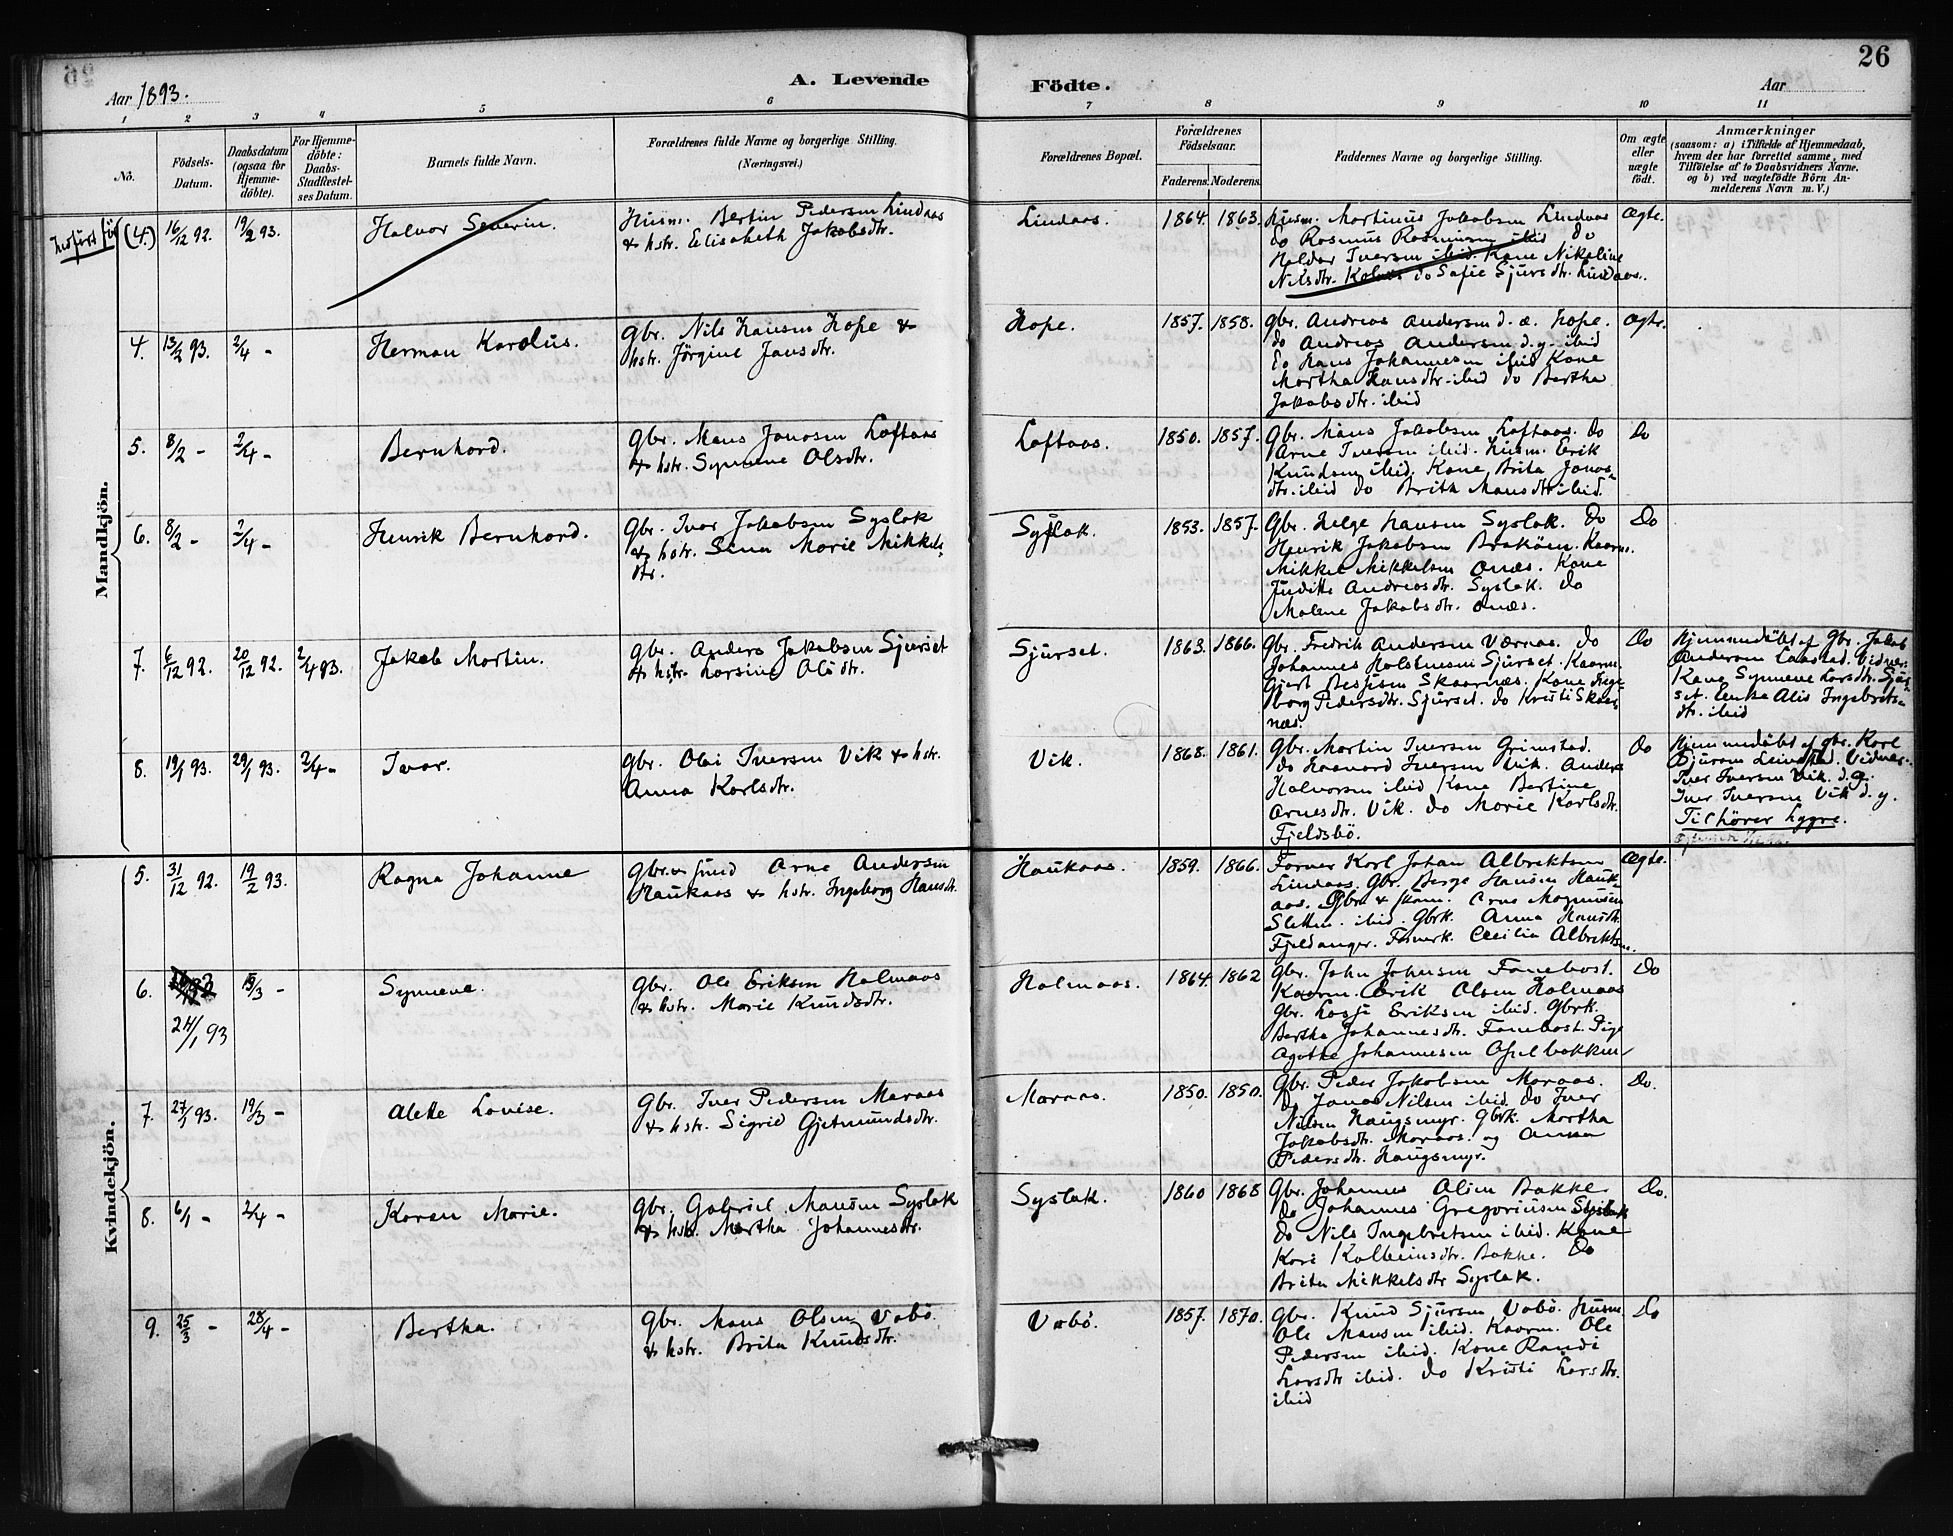 26
Aar 1893.
A. Levende Födte.
Aar
1 2 3 4 5 6 7 8 9 10 11
No.
Födsels-Datum.
Daabsdatum (ogsaa for Hjemmedöbte).
For Hjemmedöbte: Daabs-Stadfæstelses Datum.
Barnets fulde Navn.
Forældrenes fulde Navne og borgerlige Stilling.
(Næringsvei.)
Forældrenes Bopæl.
Forældrenes Födselsaar.
Faderens. Moderens.
Faddernes Navne og borgerlige Stilling.
Om ægte eller uægte födt.
Anmærkninger
(saasom: a) i Tilfælde af Hjemmedaab, hvem der har forrettet samme, med Tilföielse af to Daabsvidners Navne. og b) ved uægtefödte Börn Anmelderens Navn m. V.)
Mandkjön.
(4.) 16/12 92. 19/2 93. Halvor Severin.
Husm. Bertin Pedersen Lindaas
& hstr. Elisabeth Jakobsdtr.
Lindaas. 1864. 1863.
Husm. Martinus Jakobsen Lindaas
Do Rasmus Rasmussen ibid do
Haldor Iversen ibid. Kone Nikoline
Nilsdtr. do Sofie Sjursdtr. Lindaas.
Ægte.
4. 13/2 93. 2/4 - Herman Karolus.
Gbr. Nils Hansen Hope &
hstr. Jörgine Jansdtr.
Hope. 1857. 1858.
Gbr. Andreas Andersen d. æ. Hope.
do Andreas Andersen d. y. ibid
Do Hans Johannesen ibid Kone
Martha Hansdtr. ibid do Bertha
Jakobsdtr. ibid
Ægte.
5. 8/2 - 2/4 - Bernhard.
Gbr. Mons Jonasen Loftaas
& hstr. Synneve Olsdtr.
Loftaas. 1850. 1857.
Gbr. Mons Jakobsen Loftaas. do
Arne Iversen ibid. Husm. Erik
Knudsen ibid. Kone Brita Jonas-
dtr. ibid do Brita Monsdtr ibid.
Do
6. 8/2 - 2/4 - Henrik Bernhard.
Gbr. Ivar Jakobsen Syslak
& hstr. Sina Marie Mikkels-
dtr.
Syslak. 1853. 1857.
Gbr. Helge Hansen Syslak. Do
Henrik Jakobsen Kaarm.
Mikkel Mikkelsen Kone
Andreasdtr. Syslak. do
Malene Jakobsdtr.
Do
7. 6/12 92. 20/12 92. 2/4 93. Jakob Martin.
Gbr. Anders Jakobsen Sjurset
& hstr. Larsine Olsdtr.
Sjurset. 1863. 1866.
Gbr. Fredrik Andersen Værnes. do
Johannes Sjurset. Kaarm.
Skaarnæs. Kone Inge-
borg Pedersdtr. Sjurset. do Kristi Skaar-
næs.
Do
Hjemmedöbt af gbr. Jakob
Andersen Vidner:
Kone Synneve Larsdtr. Sjur-
set. Enke Alis Ingebrets-
dtr. ibid
8. 19/1 93. 29/1 93. 2/4 - Ivar.
Gbr. Olai Iversen Vik & hstr.
Anna Karlsdtr.
Vik. 1868. 1861.
Gbr. Martin Iversen Grimstad.
do Iversen Vik. Anders
Halvorsen ibid Kone Bertine
Arnesdtr. Vik. do Marie Karlsdtr.
Fjeldsbö.
Do
Hjemmedöbt af gbr. Karl
Sjursen Vidner:
Iver Iversen Vik. d. g.
Iver Iversen Vik d. y.
Tilhörer Lygre.
Kvindekjön.
5. 31/12 92. 19/2 93. Ragna Johanne
Gbr. Arne Andersen
Haukaas & hstr. Ingeborg Hansdtr.
Haukaas. 1859. 1866.
Farver Karl Johan Albrektsen
Lindaas. Gbr. Berge Hansen Hauk-
aas. Gbr. & Arne Magnusen
Sletten ibid. Gbrk. Anna Hansdtr.
Fjeldanger. Farverk. Cecilia Albrektsen.
Ægte.
6. 24/1 93 15/3 - Synneve.
Gbr. Ole Eriksen Halmaas
& hstr. Marie Knudsdtr.
Halmaas. 1864. 1862
Gbr. John Johnsen Fanebost.
Kaarm. Erik Olsen Halmaas
Gbr. Lasse Eriksen ibid. Gbrk.
Bertha Johannesdtr. Fanebost. Pige
Agathe Johannesen
Do
7. 27/1 93. 19/3 - Alette Lovise.
Gbr. Iver Pedersen Maraas
& hstr. Sigrid Gjetmundsdtr.
Maraas. 1850. 1850.
Gbr. Peder Jakobsen Maraas.
Do Jonas Nilsen ibid. do Iver
Nilsen Haugsmyr. Gbrk. Martha
Jakobsdtr. Maraas. og Anna
Pedersdtr. Haugsmyr.
Do.
8. 6/1 - 2/4 - Karen Marie.
Gbr. Gabriel Monsen Syslak
& hstr. Martha Johannesdtr.
Syslak. 1860 1868
Gbr. Johannes Olsen Bakke
do Johannes Gregoriusen Syslak
do Nils Ingebretsen ibid. Kone
Kari Kolbeinsdtr. Bakke. Do
Brita Mikkelsdtr Syslak.
Do.
9. 25/3 - 28/4 - Bertha.
Gbr. Mons Olsen Vabö
& hstr. Brita Knudsdtr.
Vabö. 1857. 1870.
Gbr. Knud Sjursen Vabö. Husm.
Ole Monsen ibid. Kaarm. Ole
Pedersen ibid. Kone Randi
Larsdtr ibid. do Kristi Larsdtr.
ibid
Do